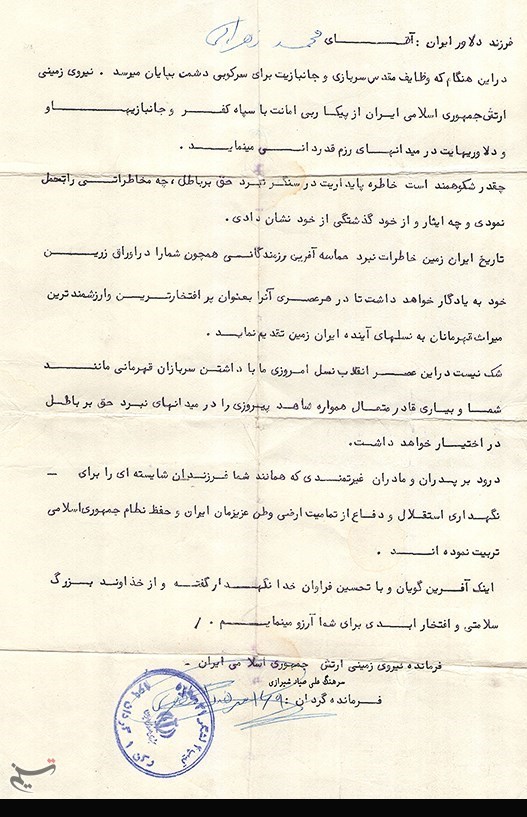 فرزند دلاور ایران : آقـــــــای محمد زهرائی
دراین هنگام که وظایف مقدس سربازی و جانبازیت برای سرکوبی دشمن بپایان میرسد . نیروی زمینی
ارتش جمهوری اسلامی ایـران از پیکار بی امانت با سپاه کفـــر و جانبازیهــــــاو
و دلاوریهایت در میدانهــای رزم قدردانـــی مینمایـــــد .
چقدر شکوهمند است خاطره پایداریت در سنگـر نبـرد حق برباطل ، چه مخاطراتـــی راتحمل
نمودی و چه ایثار و از خود گذشتگی از خود نشان دادی .
تاریخ ایران زمین خاطرات نبرد حماسه آفرین رزمندگانـی همچون شمارا دراوراق زریــــن
خود به یادگار خواهد داشت تا در هرعصـری آنرا بعنوان پر افتخارتـریـــن وارزشمندترین
میراث قهرمانان به نسلهای آینده ایران زمین تقدیم نمایـد .
شک نیست دراین عصـــر انقلاب نسل امـروزی ما با داشتن سربازان قهرمانی ماننـــد
شمـا و بیـاری قادر متعـال همواره شاهـد پیـروزی را در میدانهای نبرد حق بر باطـل
در اختیـار خواهد داشـت.
درود بر پـدران و مادران غیرتمنــدی که همانند شما فرزنــدان شایسته ای را برای ـ
نگهـداری استقـلال و دفـاع از تمامیت ارضی وطن عزیزمان ایران و حفظ نظام جمهوری اسلامی
تربیت نموده انـــد .
اینک آفـرین گویان و با تحسین فراوان خدا نگهـــدار گفتـه و از خداونـد بـــزرگ
سلامتی و افتخار ابــدی برای شما آرزو مینمایـــم . /
فرمانده نیروی زمینی ارتش جمهوری اسلامی ایران ـ
سرهنگ علی صیاد شیرازی
فـــرمانده گردان :
تسنیم